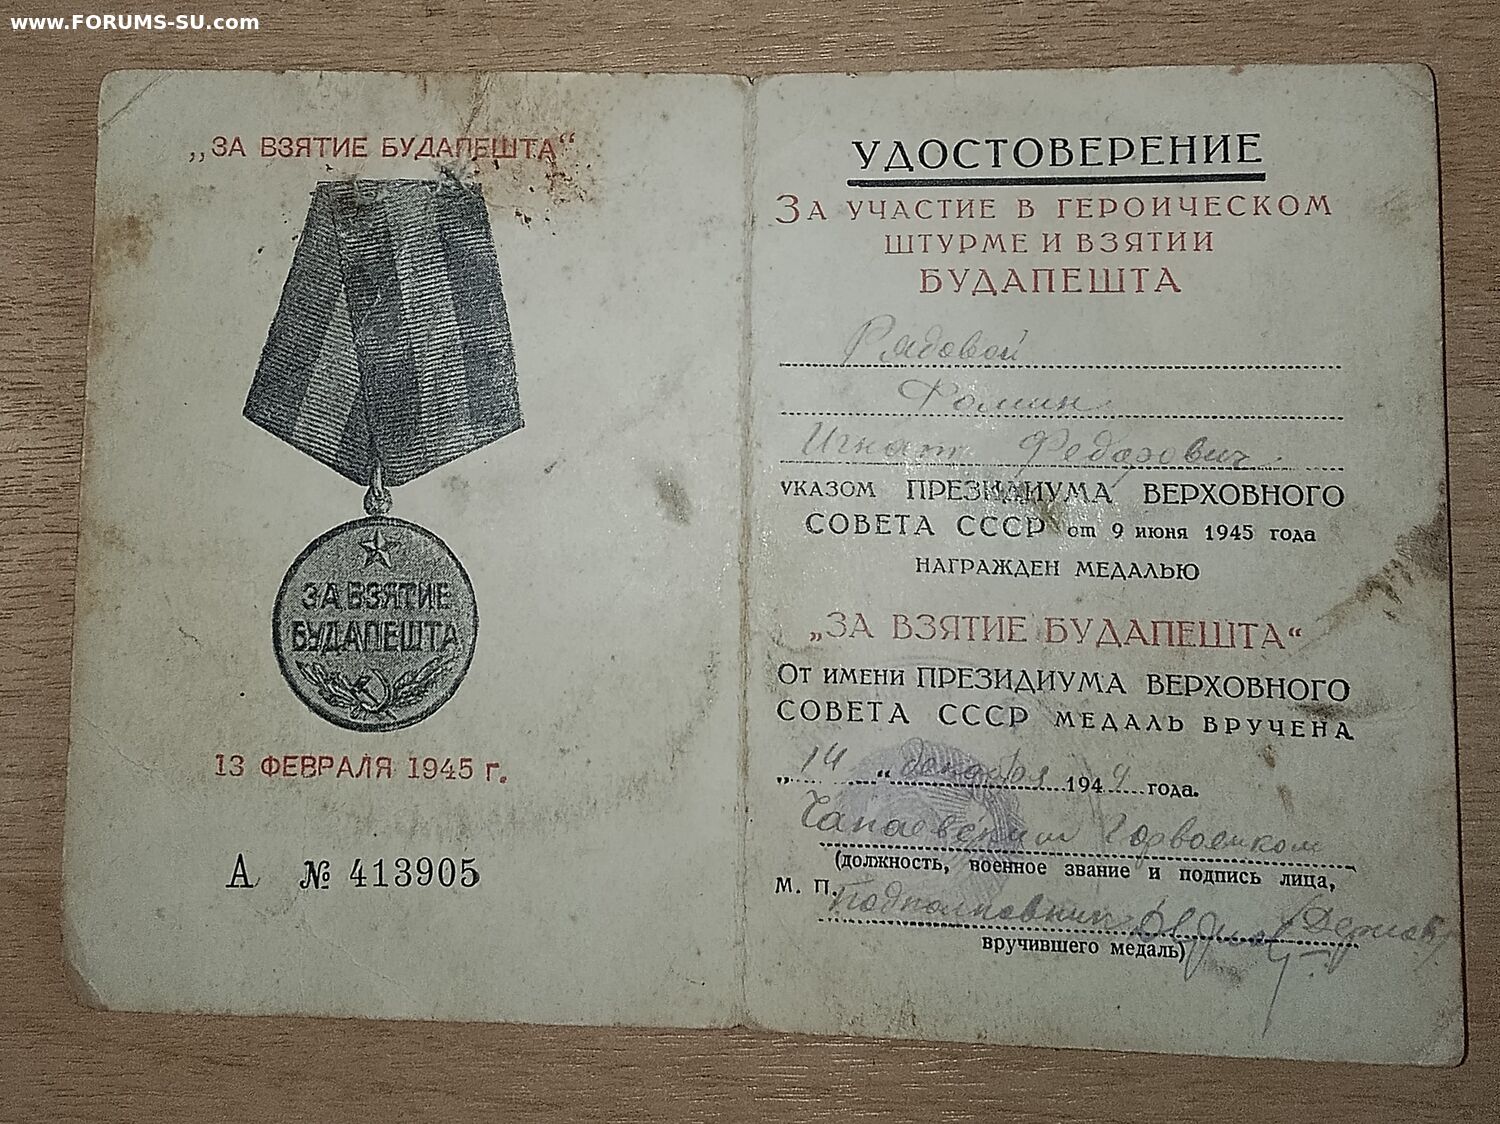 www.FORUMS-SU.com
„ЗА ВЗЯТИЕ БУДАПЕШТА“
ЗА ВЗЯТИЕ
БУДАПЕШТА
13 ФЕВРАЛЯ 1945 г.
А № 413905
УДОСТОВЕРЕНИЕ
ЗА УЧАСТИЕ В ГЕРОИЧЕСКОМ
ШТУРМЕ И ВЗЯТИИ
БУДАПЕШТА
Рядовой
Фомин
Игнат Федорович
УКАЗОМ ПРЕЗИДИУМА ВЕРХОВНОГО
СОВЕТА СССР от 9 июня 1945 года
НАГРАЖДЕН МЕДАЛЬЮ
„ЗА ВЗЯТИЕ БУДАПЕШТА“
ОТ ИМЕНИ ПРЕЗИДИУМА ВЕРХОВНОГО
СОВЕТА СССР МЕДАЛЬ ВРУЧЕНА
„14“ декабря 1949 года.
Чапаевский Горвоенком
(должность, военное звание и подпись лица,
М. П. Подполковник
вручившего медаль)